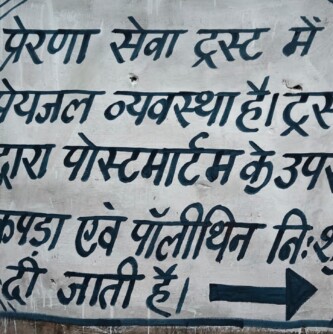 प्रेरणा सेवा ट्रस्ट में
पेयजल व्यवस्था है। ट्रस
द्वारा पोस्टमार्टम के उपर
कपड़ा एवं पॉलीथिन निःश
दी जाती है।